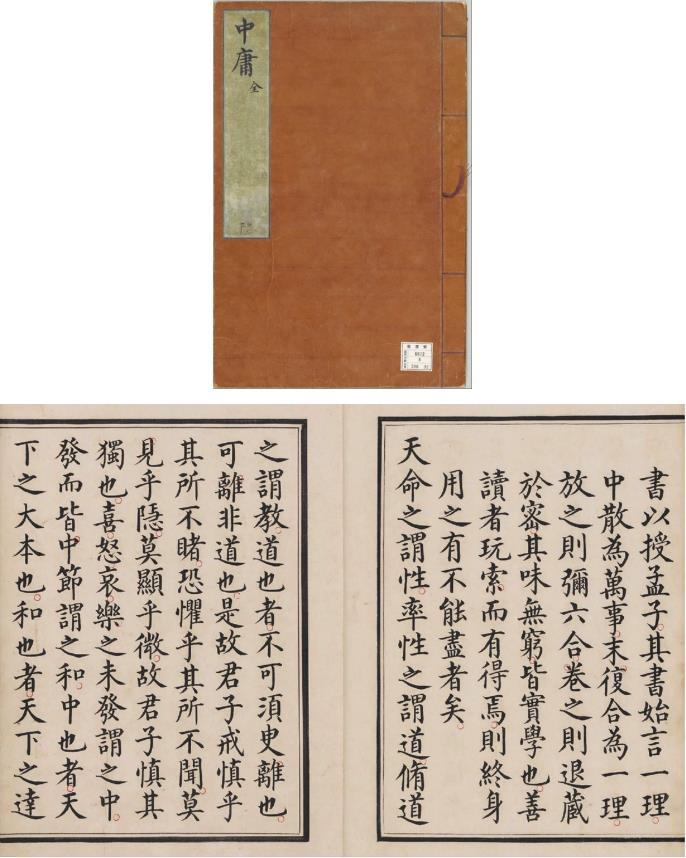 中庸
全
書以授孟子其書始言一理
中散為萬事末復合為一理
放之則彌六合卷之則退藏
於宻其味無窮皆實學也善
讀者玩索而有得焉則終身
用之有不能盡者矣
天命之謂性率性之謂道脩道
之謂教道也者不可須臾離也
可離非道也是故君子戒慎乎
其所不睹恐懼乎其所不聞莫
見乎隱莫顯乎微故君子慎其
獨也喜怒哀樂之未發謂之中
發而皆中節謂之和中也者天
下之大本也和也者天下之達